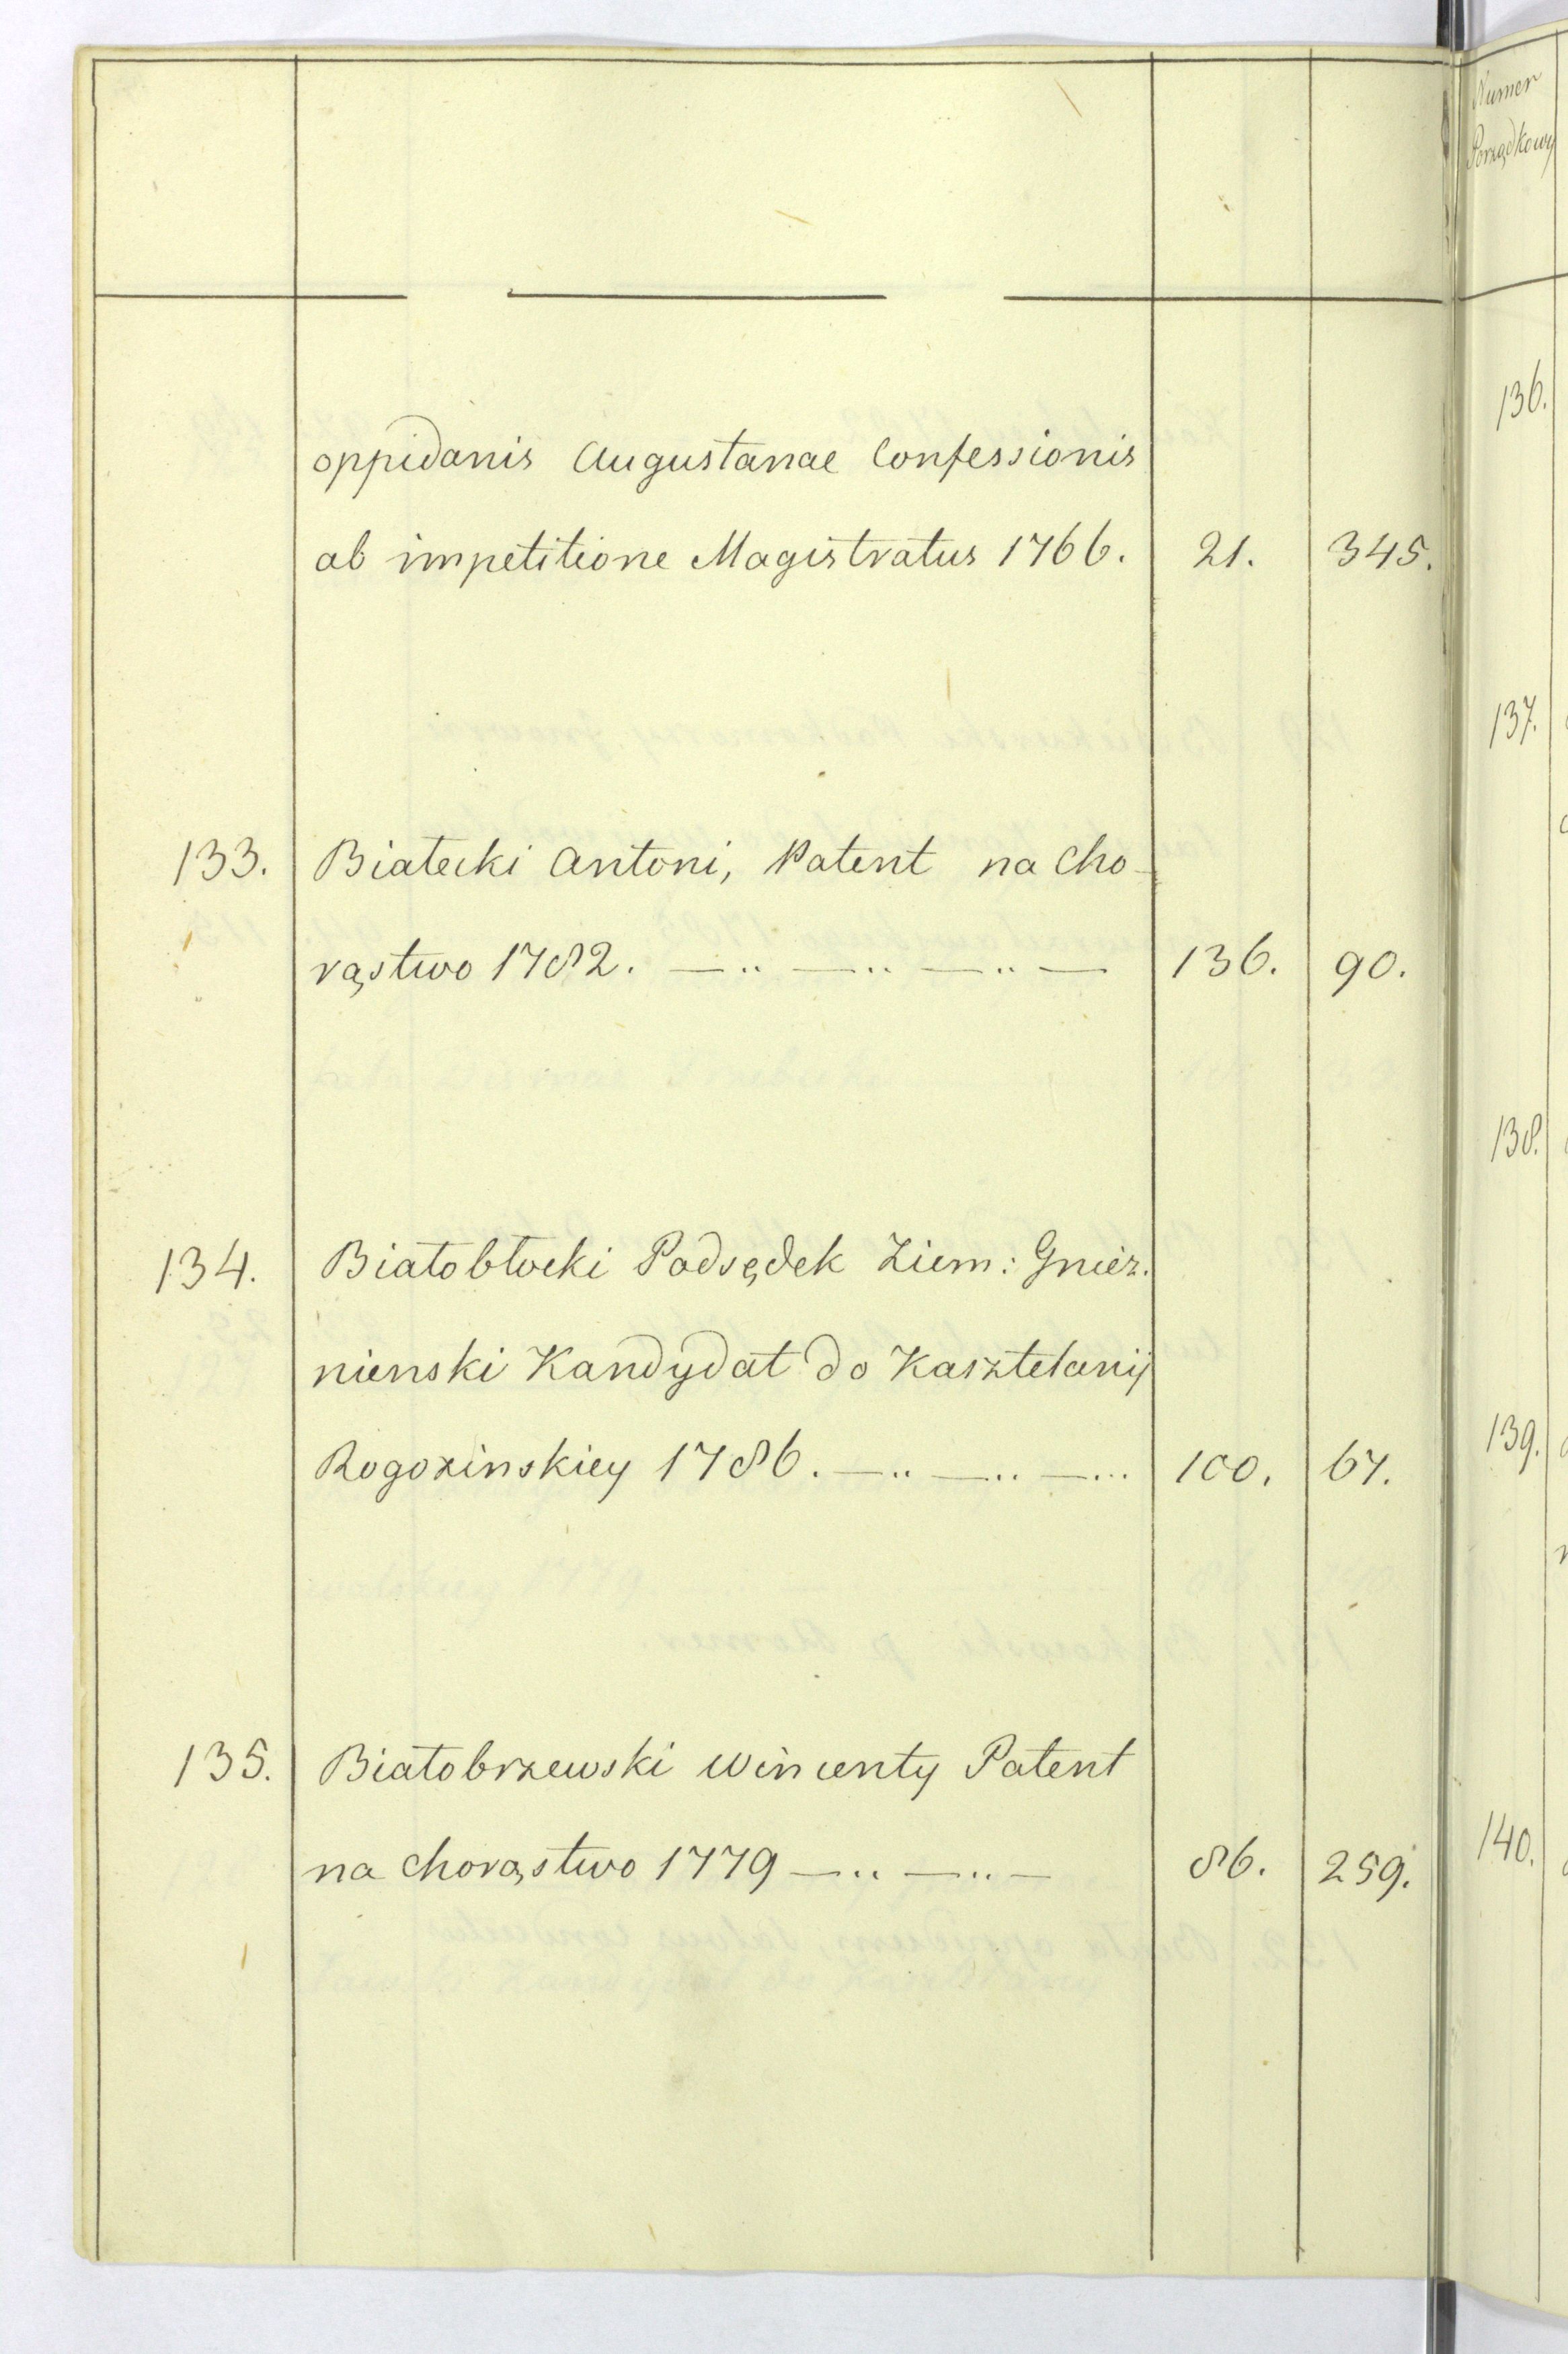 oppidanis Augustanae Confessionis
ab impetitione Magistratus 1766. 21. 345.
133. Białecki Antoni, Patent na Cho-
rąstwo 1782. —..—..—..— 136. 90.
134. Białobłocki Podsędek Ziem: Gniez.
nienski Kandydat do Kasztelanij
Rogozinskiey 1786. —..—..—... 100. 67.
135. Białobrzewski Wincenty Patent
na Chorąstwo 1779 —..—..— 86. 259.
Numer
Porządkowy
136.
137.
138.
139.
140.